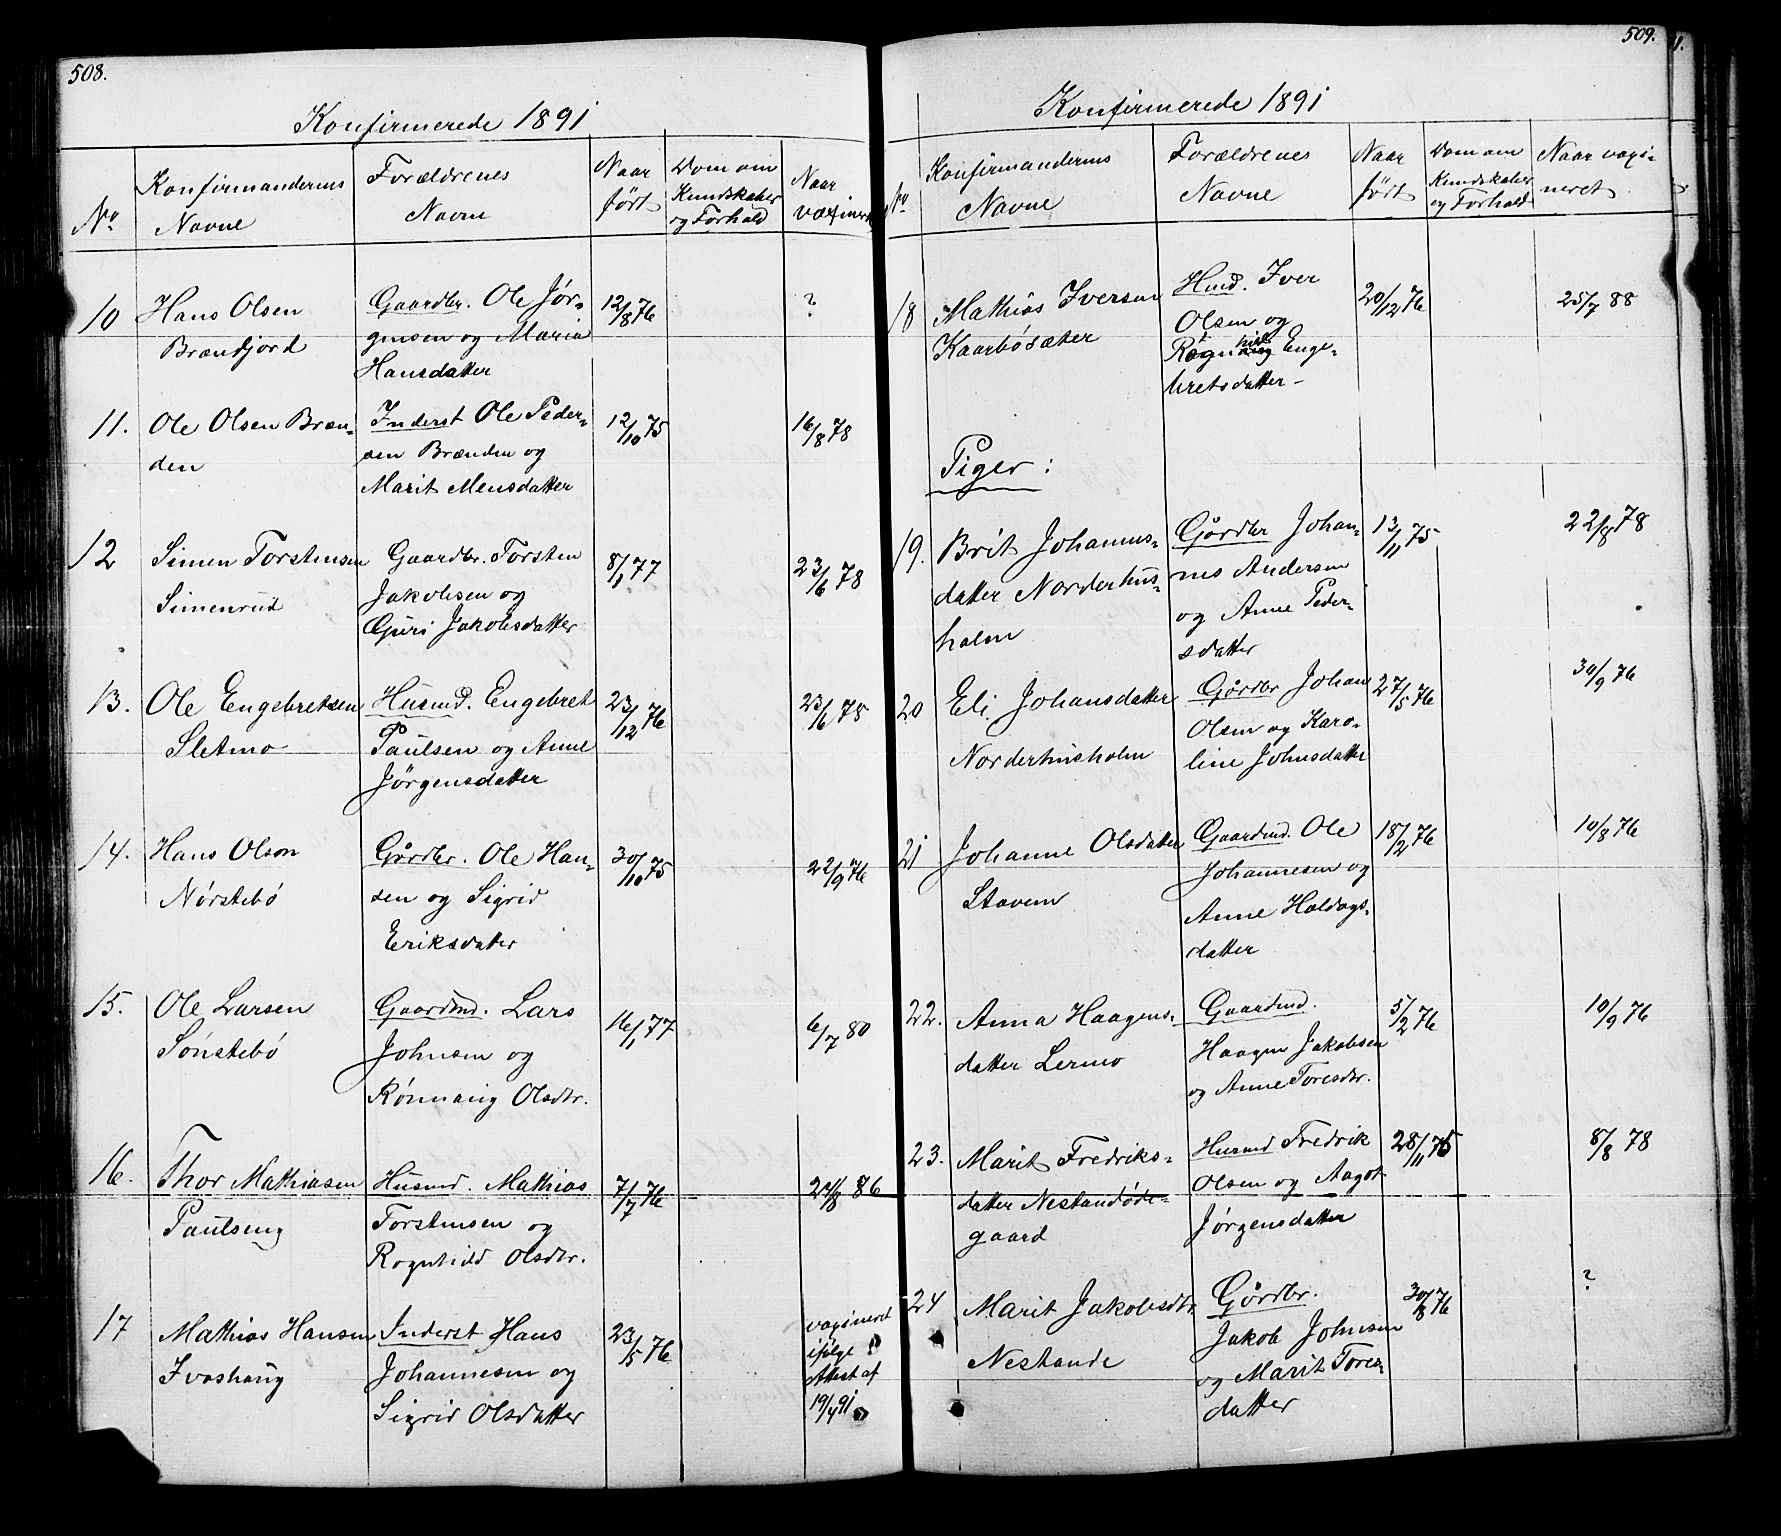 508.
Konfirmerede 1891
No
Konfirmandernes
Navne
Forældrenes
Navne
Naar
født
Dom om
Kundskaber
og Forhold
Naar
vaxineret
10
Hans Olsen
Brændjord
Gaardbr. Ole Jør-
gensen og Maria
Hansdatter
12/8 76
?
11.
Ole Olsen Bræn-
den
Inderst Ole Peder-
sen Brænden og
Marit Mensdatter
12/10 75
16/8 78
12
Simen Torstensen
Simenrud
Gaardbr. Torsten
Jakobsen og
Guri Jakobsdatter
8/1 77
23/6 78
13.
Ole Engebretsen
Sletmo
Husmd. Engebret
Paulsen og Anne
Jørgensdatter
23/12 76
23/6 78
14.
Hans Olson
Nørstebø
Gårdbr. Ole Han-
sen og Sigrid
Eriksdatter
30/10 75
22/9 76
15.
Ole Larsen
Sønstebø
Gaardmd. Lars
Johnsen og
Rønnaug Olsdtr.
16/1 77
6/7 80
16.
Thor Mathiasen
Paulseng
Husmd. Mathias
Torstensen og
Ragnhild Olsdtr.
7/7 76
24/8 86
17
Mathias Hansen
Ivashaug
Inderst Hans
Johannesen og
Sigrid Olsdatter
23/5 76
vaxineret
ifølge
Attest af
19/4 91
509.
Konfirmerede 1891
No
Konfirmandernes
Navne
Forældrenes
Navne
Naar
født
Dom om
Kundskaber
og Forhold
Naar vaxi-
neret
18
Mathias Iversen
Kaarbøsæter
Husmd. Iver
Olsen og
Ragnhild Enge-
bretsdatter
20/12 76
25/7 88
Piger:
19.
Brit Johannes-
datter Norderhus-
holm
Gårdbr Johan-
nes Andersen
og Anne Peder-
sdatter
13/11 75
22/8 78
20
Eli Johansdatter
Norderhusholm
Gårdbr Johan
Olsen og Karo-
line Johnsdatter
27/5 76
30/9 76
21
Johanne Olsdatter
Stavem
Gaardmd. Ole
Johannesen og
Anne Haldogs-
datter
18/2 76
10/8 76
22.
Anna Haagens-
datter Lermo
Gaardmd.
Haagen Jakobsen
og Anne Toresdtr.
5/2 76
10/9 76
23.
Marit Fredriks-
datter Nestandøde-
gaard
Husmd Fredrik
Olsen og Aagot
Jørgensdatter
28/11 75
8/8 78
24
Marit Jakobsdtr
Nestande
Gårdbr.
Jakob Johnsen
og Marit Tores-
datter
30/8 76
?